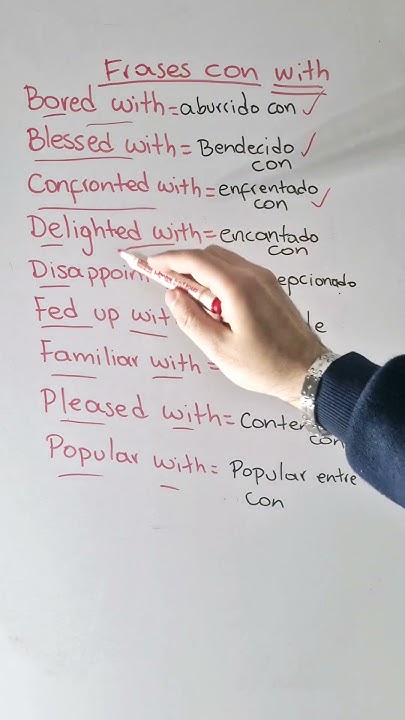 Frases con with
Bored with = aburrido con ✓
Blessed with = Bendecido ✓
con
Confronted with = enfrentado
con ✓
Delighted with = encantado
con
Disappoin epcionado
Fed up wit de
Familiar with =
Pleased with = Conten
con
Popular with = Popular entre
con